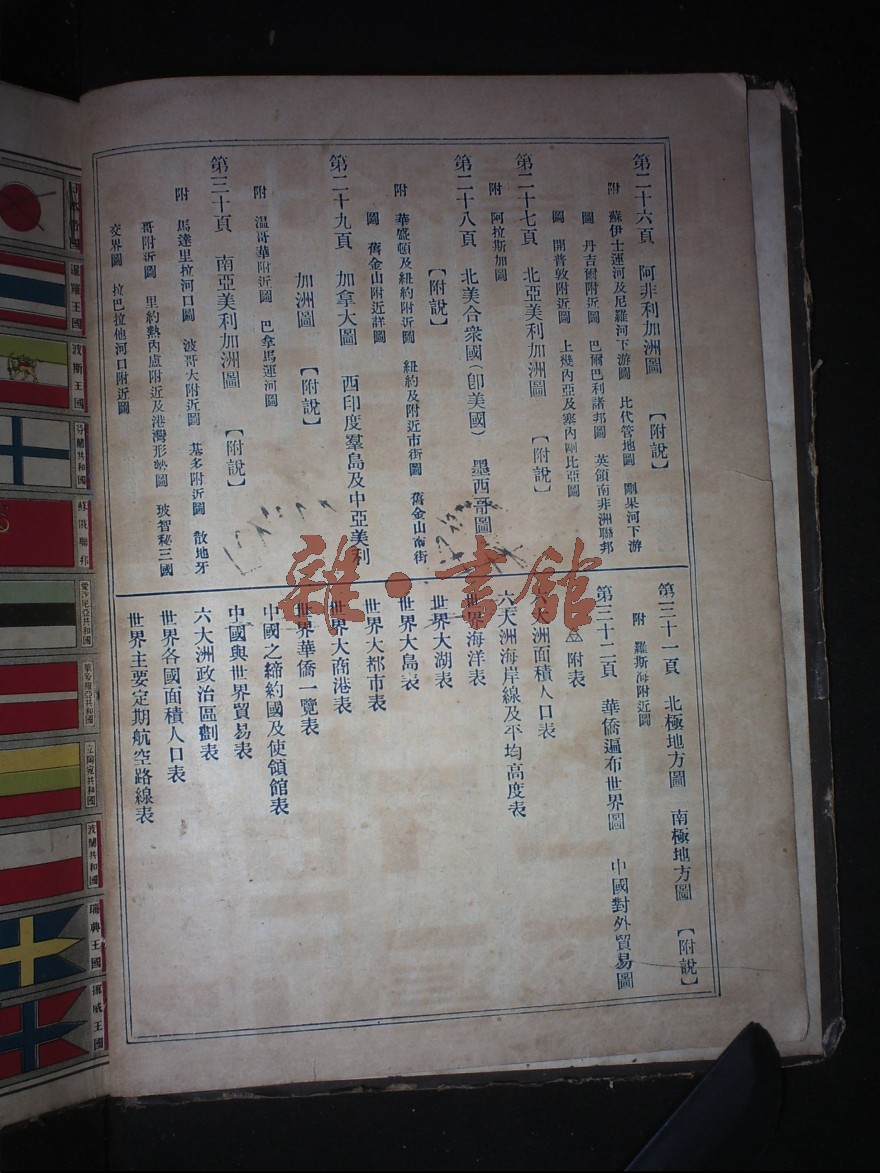 第二十六頁　阿非利加洲圖　【附說】
附　蘇伊士運河及尼羅河下游圖　比代管地圖　剛果河下游
圖　丹吉爾附近圖　巴爾巴利諸邦圖　英領南非洲聯邦
圖　開普敦附近圖　上幾內亞及塞內剛比亞圖
第二十七頁　北亞美利加洲圖　【附說】
附　阿拉斯加圖
第二十八頁　北美合衆國(卽美國)　墨西哥圖
【附說】
附　華盛頓及紐約附近圖　紐約及附近市街圖　舊金山市街
圖　舊金山附近詳圖
第二十九頁　加拿大圖　西印度羣島及中亞美利
加洲圖　【附說】
附　温哥華附近圖　巴拿馬運河圖
第三十頁　南亞美利加洲圖　【附說】
附　馬達里拉河口圖　波哥大附近圖　基多附近圖　散地牙
哥附近圖　里約熱內盧附近及港灣形勢圖　玻智秘三國
交界圖　拉巴拉他河口附近圖
第三十一頁　北極地方圖　南極地方圖　【附說】
附　羅斯海附近圖
第三十二頁　華僑遍布世界圖　中國對外貿易圖
附表
六大洲面積人口表
六大洲海岸線及平均高度表
世界海洋表
世界大湖表
世界大島表
世界大都市表
世界大商港表
世界華僑一覽表
中國之締約國及使領館表
中國與世界貿易表
六大洲政治區劃表
世界各國面積人口表
世界主要定期航空路線表
雜·書館
日本帝國
暹羅王國
波斯王國
芬蘭共和國
蘇俄聯邦
愛沙尼亞共和國
立陶宛共和國
波蘭共和國
瑞典王國
挪威王國